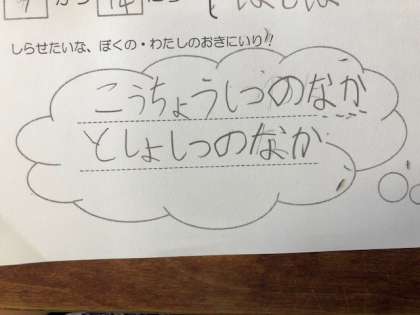 から
しらせたいな、ぼくの・わたしのおきにいり!!
こうちょうしつのなか
としょしつのなか